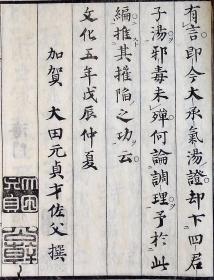 有言即今大承氣湯證却下四君
子湯邪毒未殫何論調理予於此
編推其摧陷之功云
文化五年戊辰仲夏
加賀 大田元貞才佐父撰
元貞